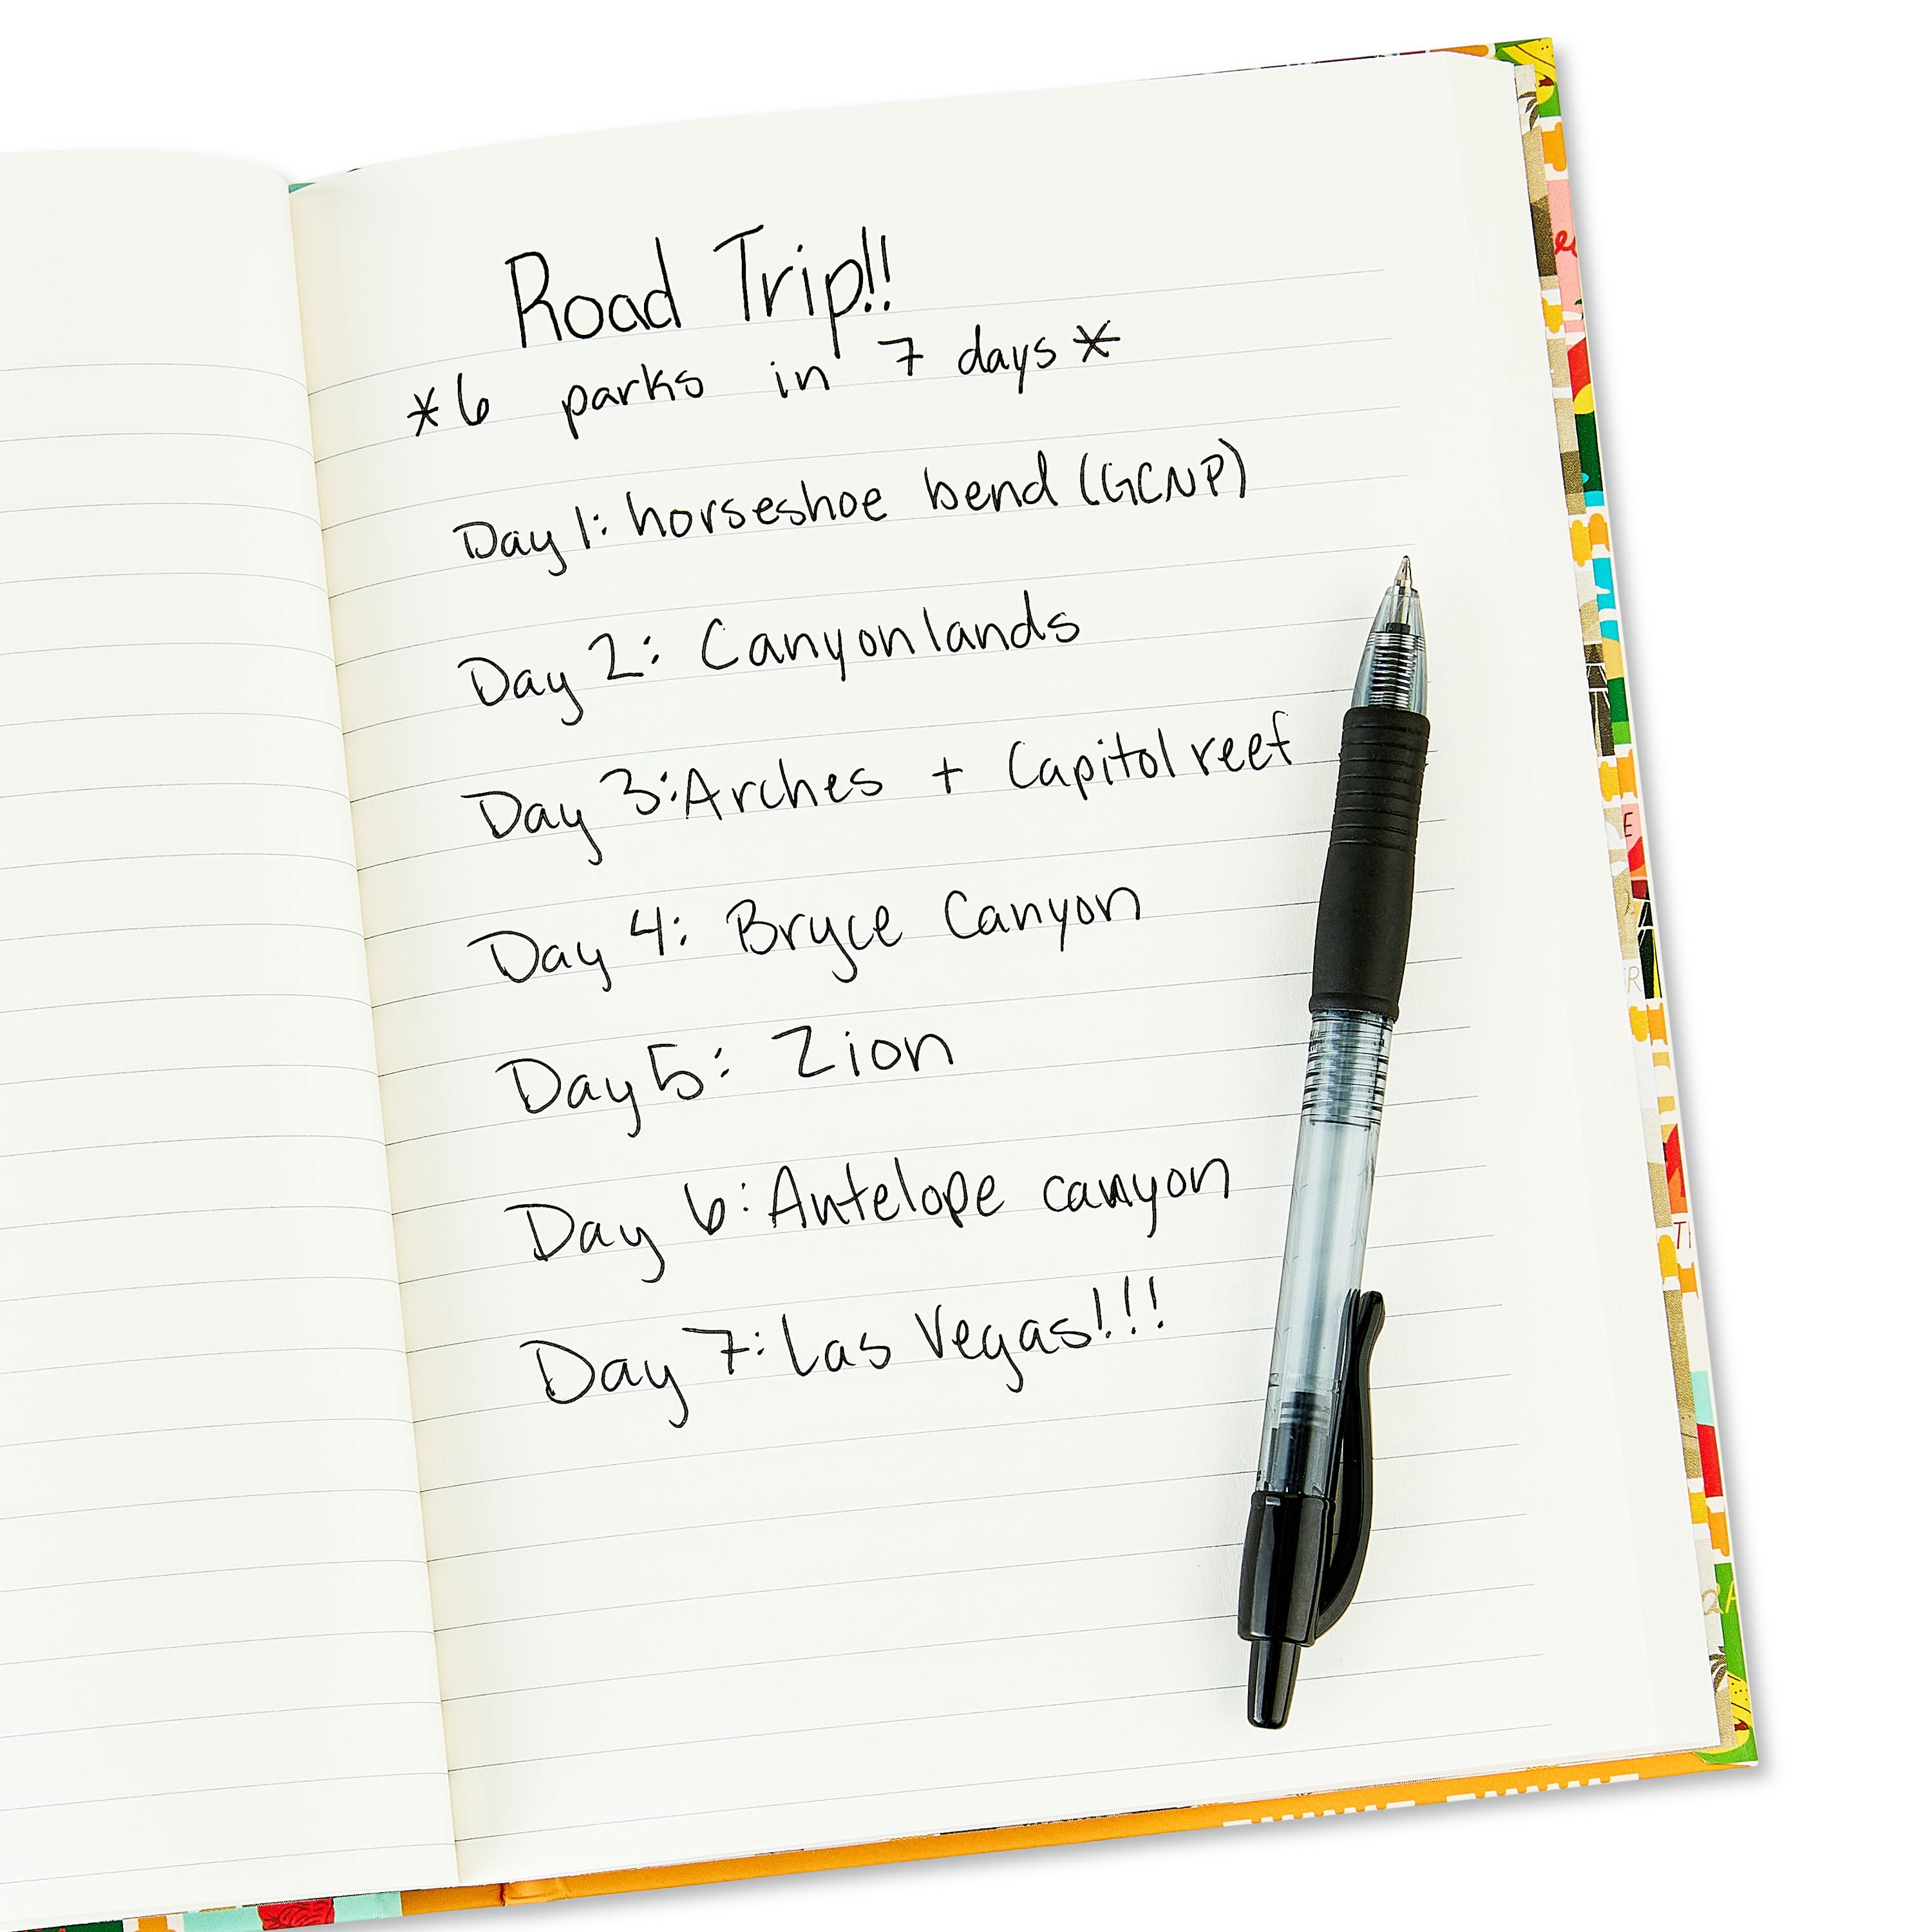 Road Trip!!
*6 parks in 7 days*
Day 1: horseshoe bend (GCNP)
Day 2: Canyonlands
Day 3: Arches + Capitol reef
Day 4: Bryce Canyon
Day 5: Zion
Day 6: Antelope canyon
Day 7: Las Vegas!!!